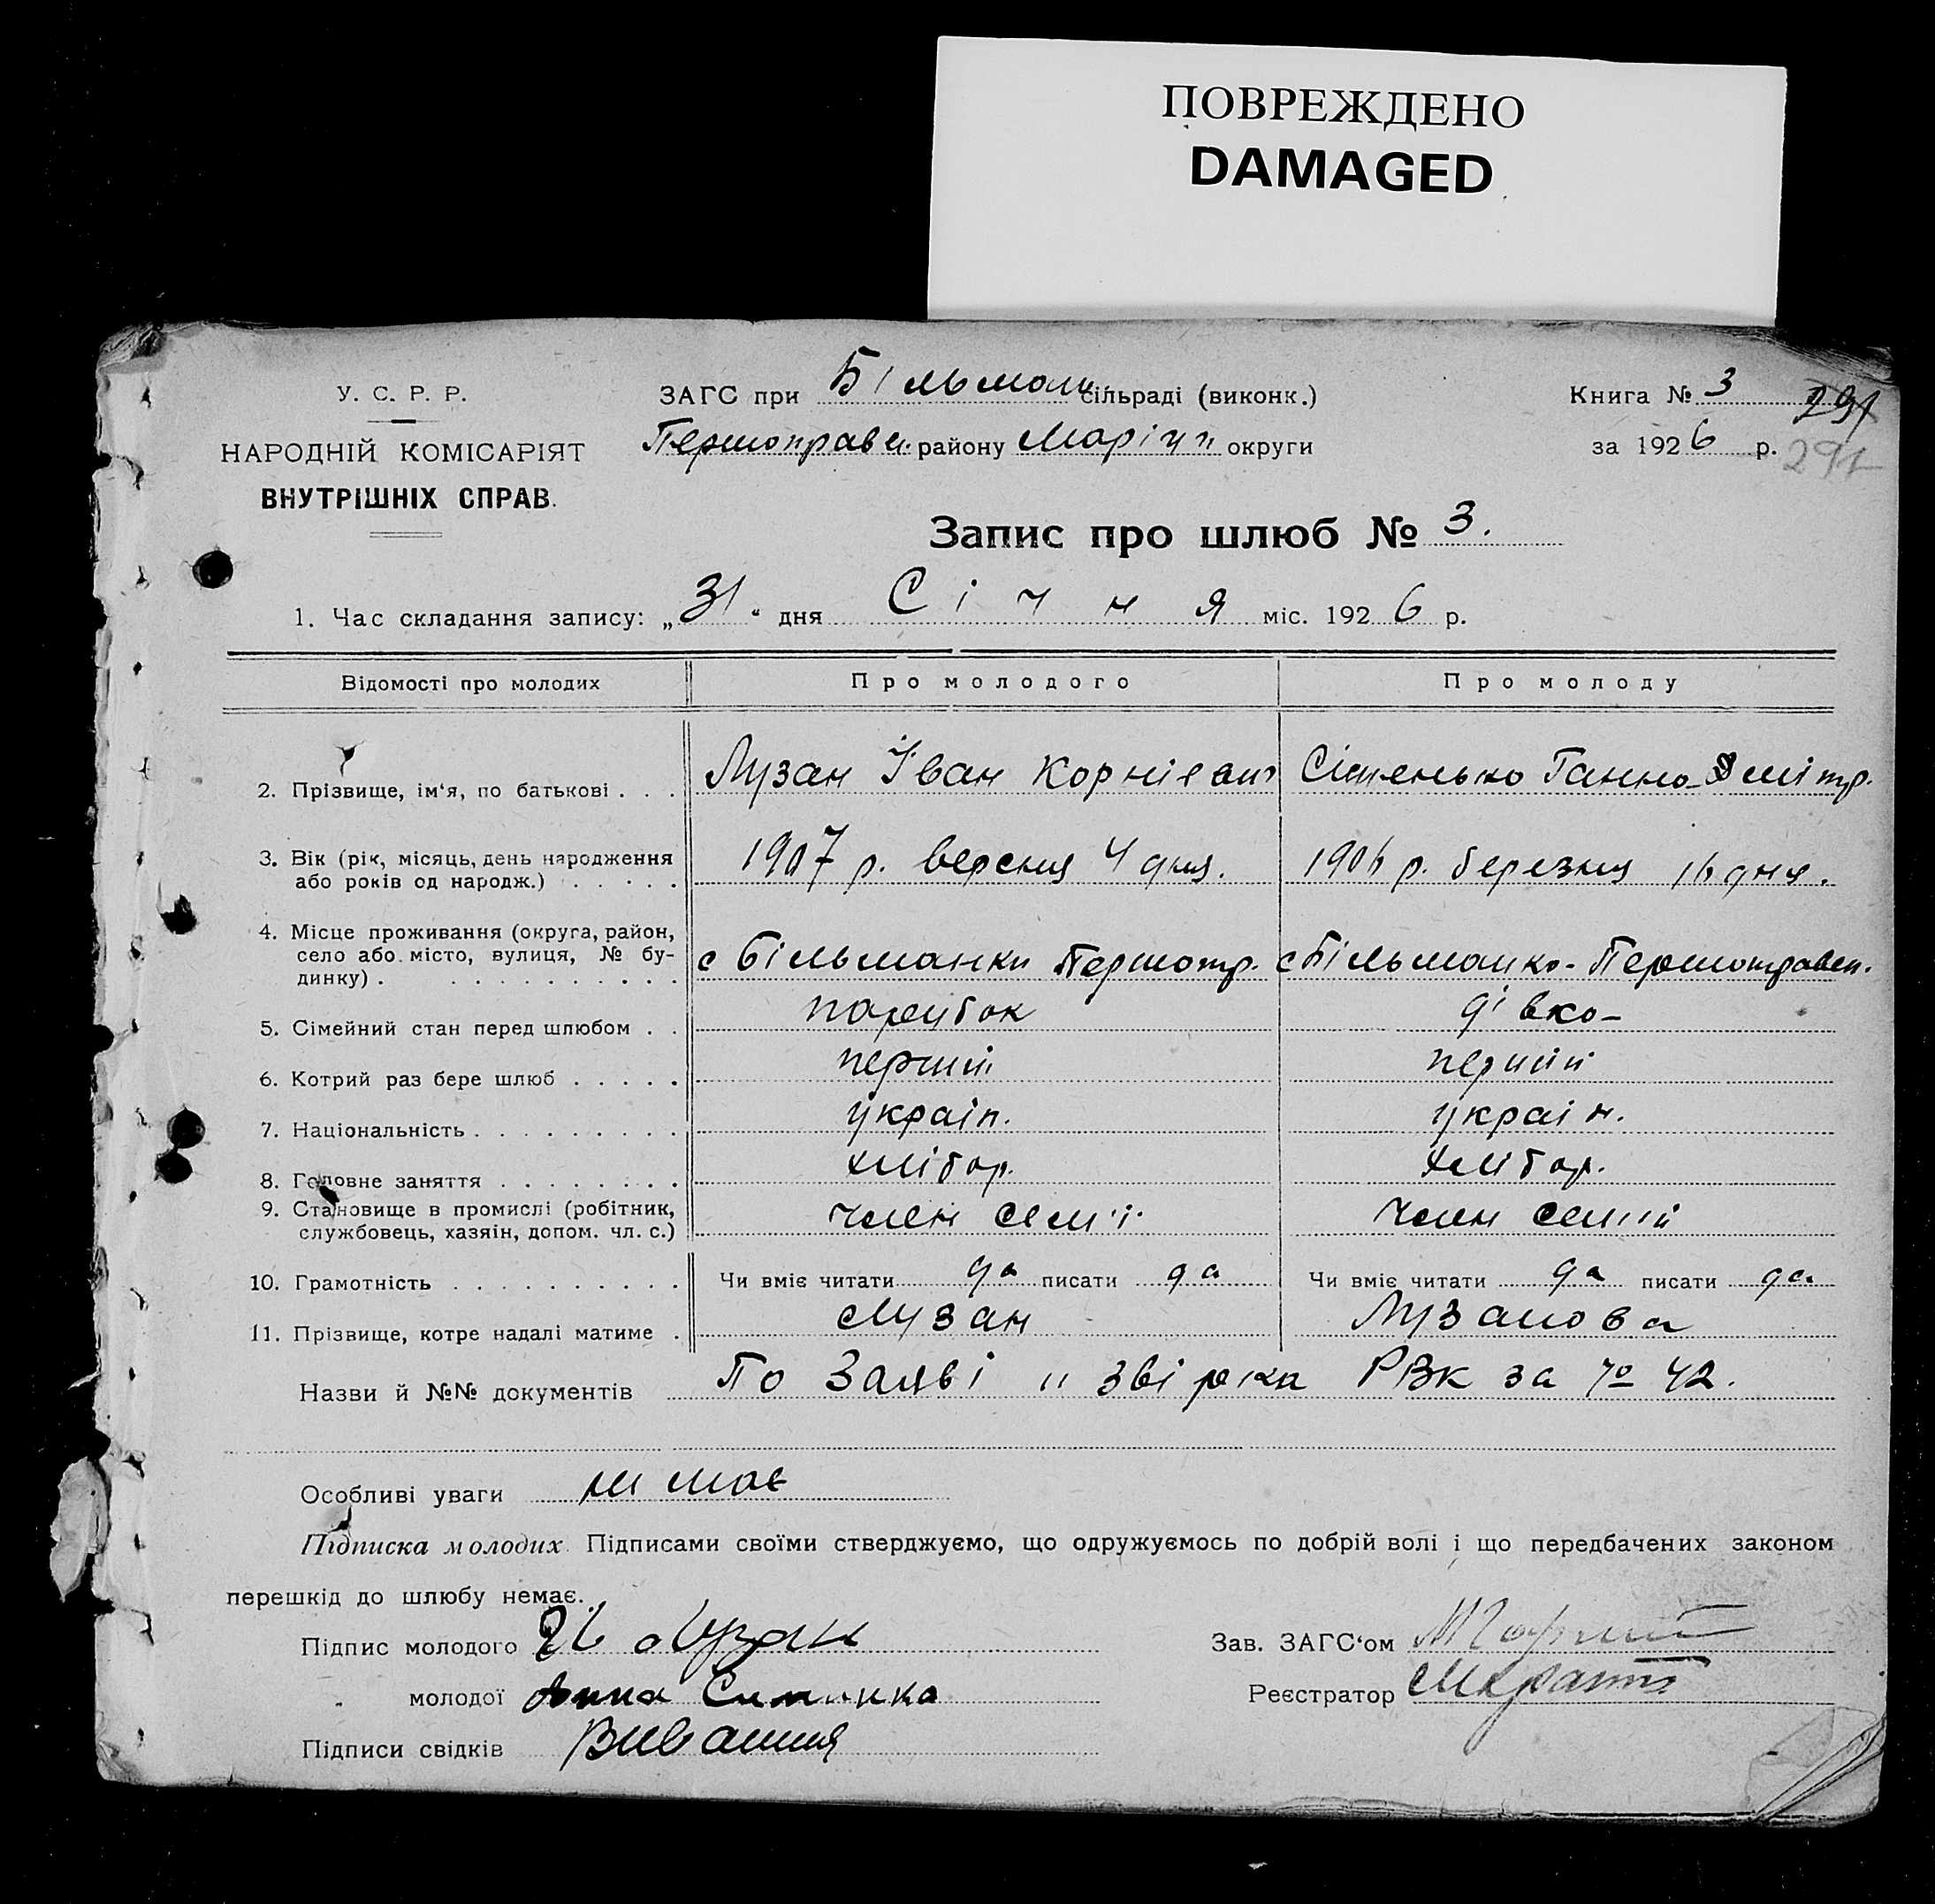 ПОВРЕЖДЕНО
DAMAGED
У. С. Р. Р.
НАРОДНІЙ КОМІСАРІЯТ
ВНУТРІШНІХ СПРАВ.
ЗАГС при Більман. сільраді (виконк.)
Першоправн. району Маріуп округи
Книга № 3 291
за 1926 р. 291
Запис про шлюб № 3.
1. Час складання запису: „31“ дня Січня міс. 1926 р.
Відомості про молодих Про молодого Про молоду
2. Прізвище, ім‘я, по батькові . . . Лузан Іван Корнієв Сіменько Ганна Дмітр.
3. Вік (рік, місяць, день народження
або років од народж.) . . . . . 1907 р. версня 4 дня. 1906 р. березня 16 дня.
4. Місце проживання (округа, район,
село або місто, вулиця, № бу-
динку) . . . . . . . . . . . с Більманки Першопр. с Більманка Першоправн.
5. Сімейний стан перед шлюбом . . парубок дівка
6. Котрий раз бере шлюб . . . . . перший перший
7. Національність . . . . . . . . . україн. україн.
8. Головне заняття . . . . . . . . хлібор. хлібор.
9. Становище в промислі (робітник,
службовець, хазяін, допом. чл. с.) член семʼї член семії
10. Грамотність . . . . . . . . . . Чи вміє читати да писати да Чи вміє читати да писати да
11. Прізвище, котре надалі матиме . Лузан Лузанова
Назви й №№ документів По Заяві и звірка РВК за № 42.
Особливі уваги ни має
Підписка молодих. Підписами своїми стверджуємо, що одружуємось по добрій волі і що передбачених законом
перешкід до шлюбу немає.
Підпис молодого Ив Лузан
Зав. ЗАГС‘ом
молодої Анна Симинка
Реєстратор
Підписи свідків